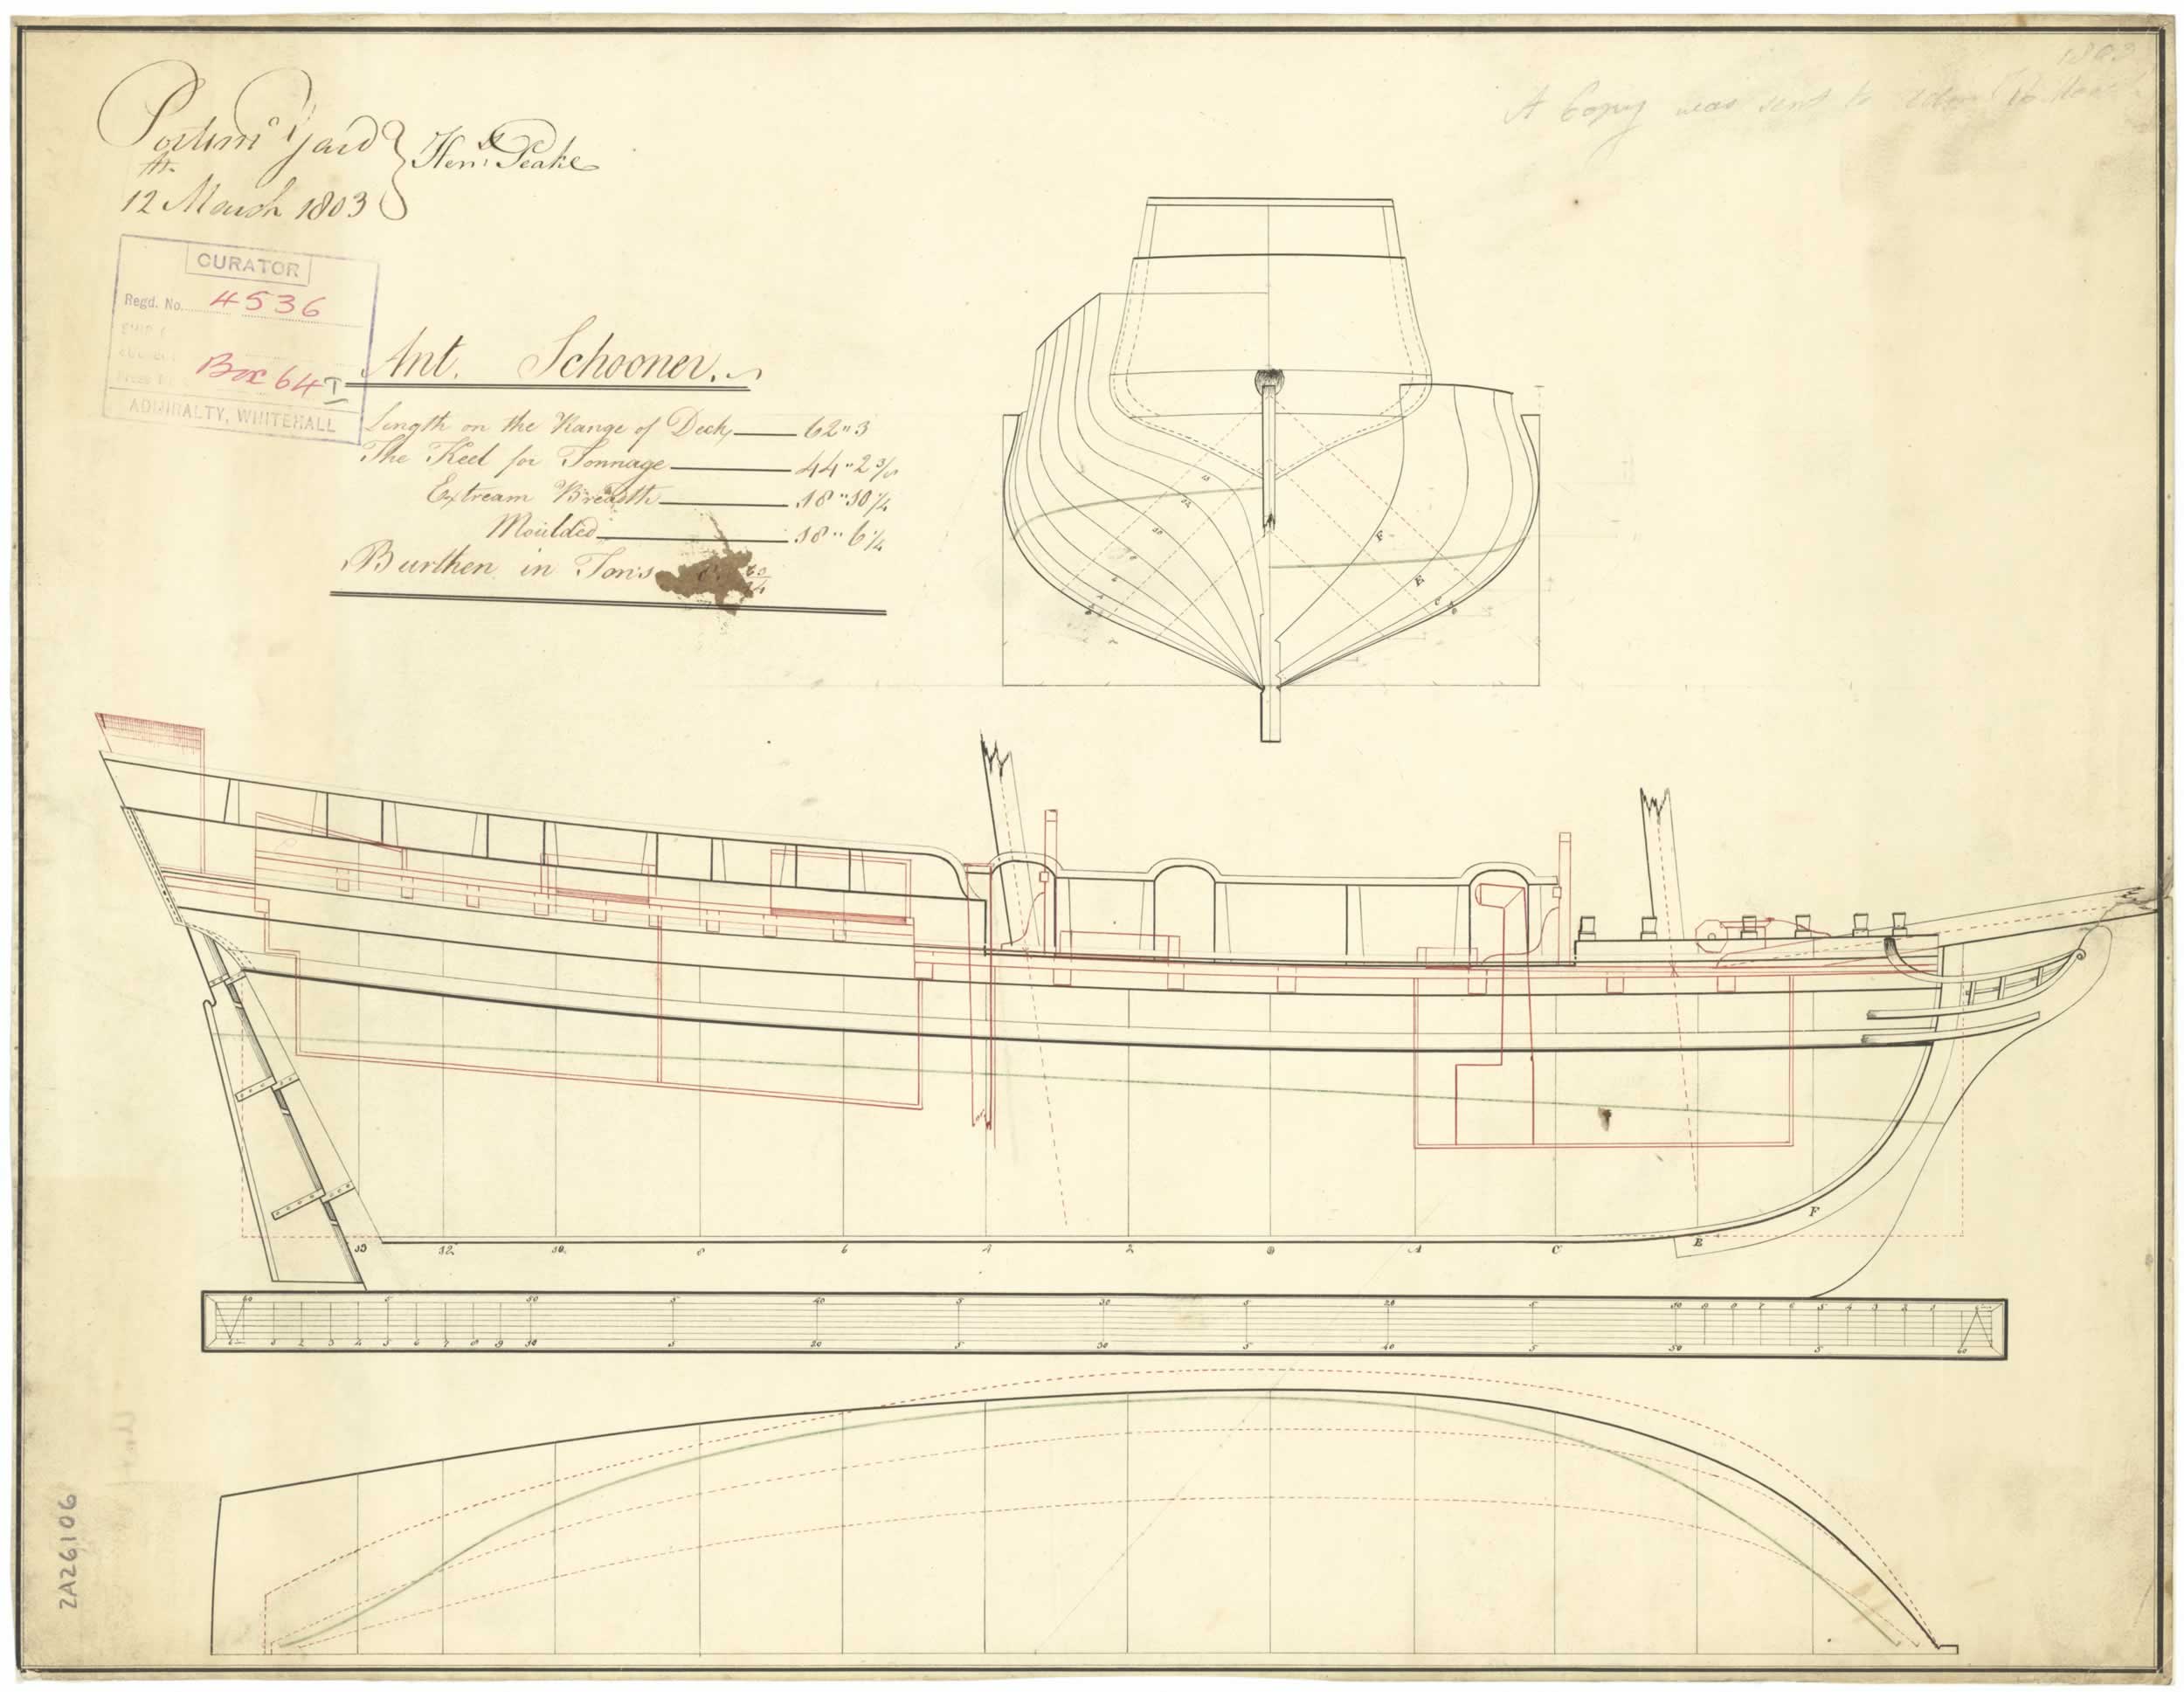 Portsmº Yard
12 March 1803
Henʸ Peake
A Copy was sent to
1803
CURATOR
Regd. No. 4536
Box 64
ADMIRALTY, WHITEHALL
Ant. Schooner.
Length on the Range of Deck 62"3
The Keel for Tonnage 44"2 3/8
Extream Breadth 18"10 1/4
Moulded 18"6 1/4
Burthen in Tons
F
E
C
13 12 10 8 6 4 2 A C E
F
60 5 50 5 40 5 30 5 20 5 10 9 8 7 6 5 4 3 2 1
1 2 3 4 5 6 7 8 9 10 5 20 5 30 5 40 5 50 5 60
ZA26106